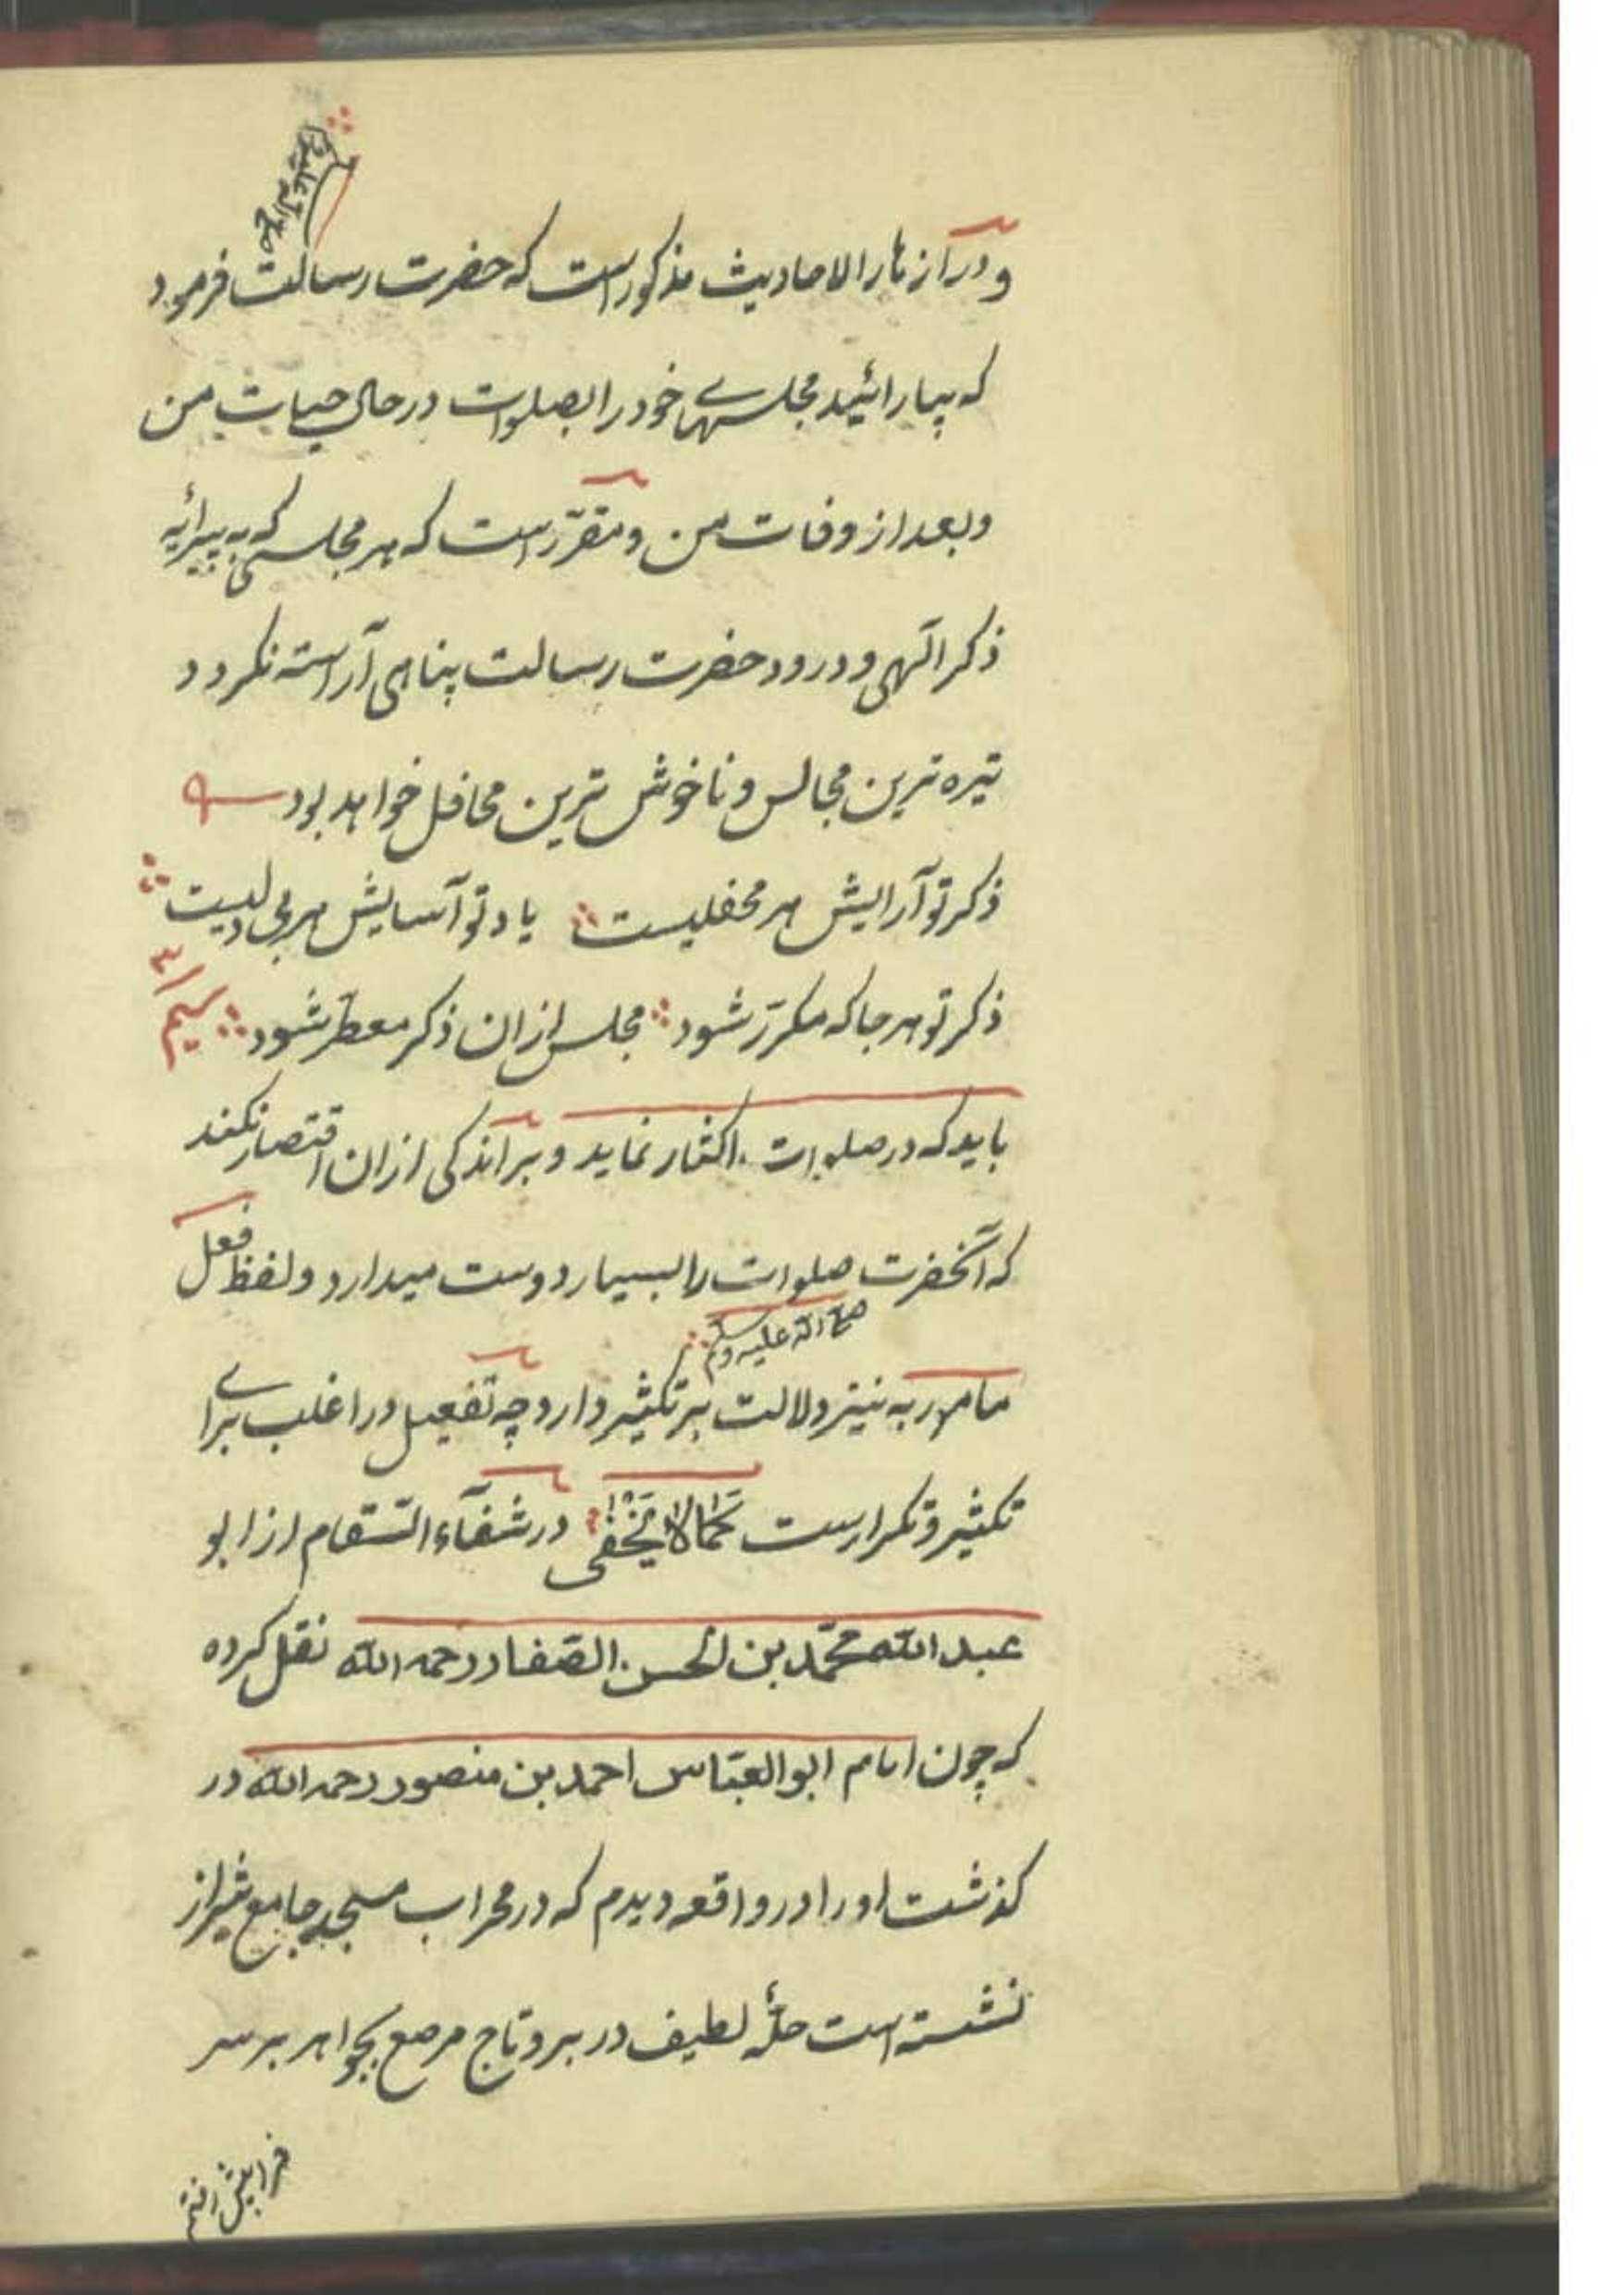 صلی الله علیه وسلم
و در ازهار الاحادیث مذکور است که حضرت رسالت فرمود
که بیارائید مجلسهای خود را بصلوات در حال حیات من
و بعد از وفات من و مقرّر است که هر مجلسی که به پیرائه
ذکر الهی و درود حضرت رسالت پناهی آراسته نکردد
تیره ترین مجالس و ناخوش ترین محافل خواهد بود
ذکر تو آرایش هر محفلیست یاد تو آسایش هر بی دلیست
ذکر تو هر جا که مکرّر شود مجلس ازان ذکر معطّر شود
باید که در صلوات اکثار نماید و بر اندکی ازان اقتصار نکند
که آنحضرت صلوات را بسیار دوست میدارد و لفظ فعل
صلی الله علیه وسلم
مامور به نیز دلالت بر تکثیر دارد چه تفعیل در اغلب برای
تکثیر و تکرارست کَمَا لَا یَخْفٰی در شفآء السّقام از ابو
عبد الله محمّد بن الحسن الصّفار رحمه الله نقل کرده
که چون امام ابو العبّاس احمد بن منصور رحمه الله در
کذشت او را در واقعه دیدم که در محراب مسجد جامع شیراز
نشسته است حلّهٔ لطیف در بر و تاج مرصع بجواهر بر سر
فرا پیش رفتم